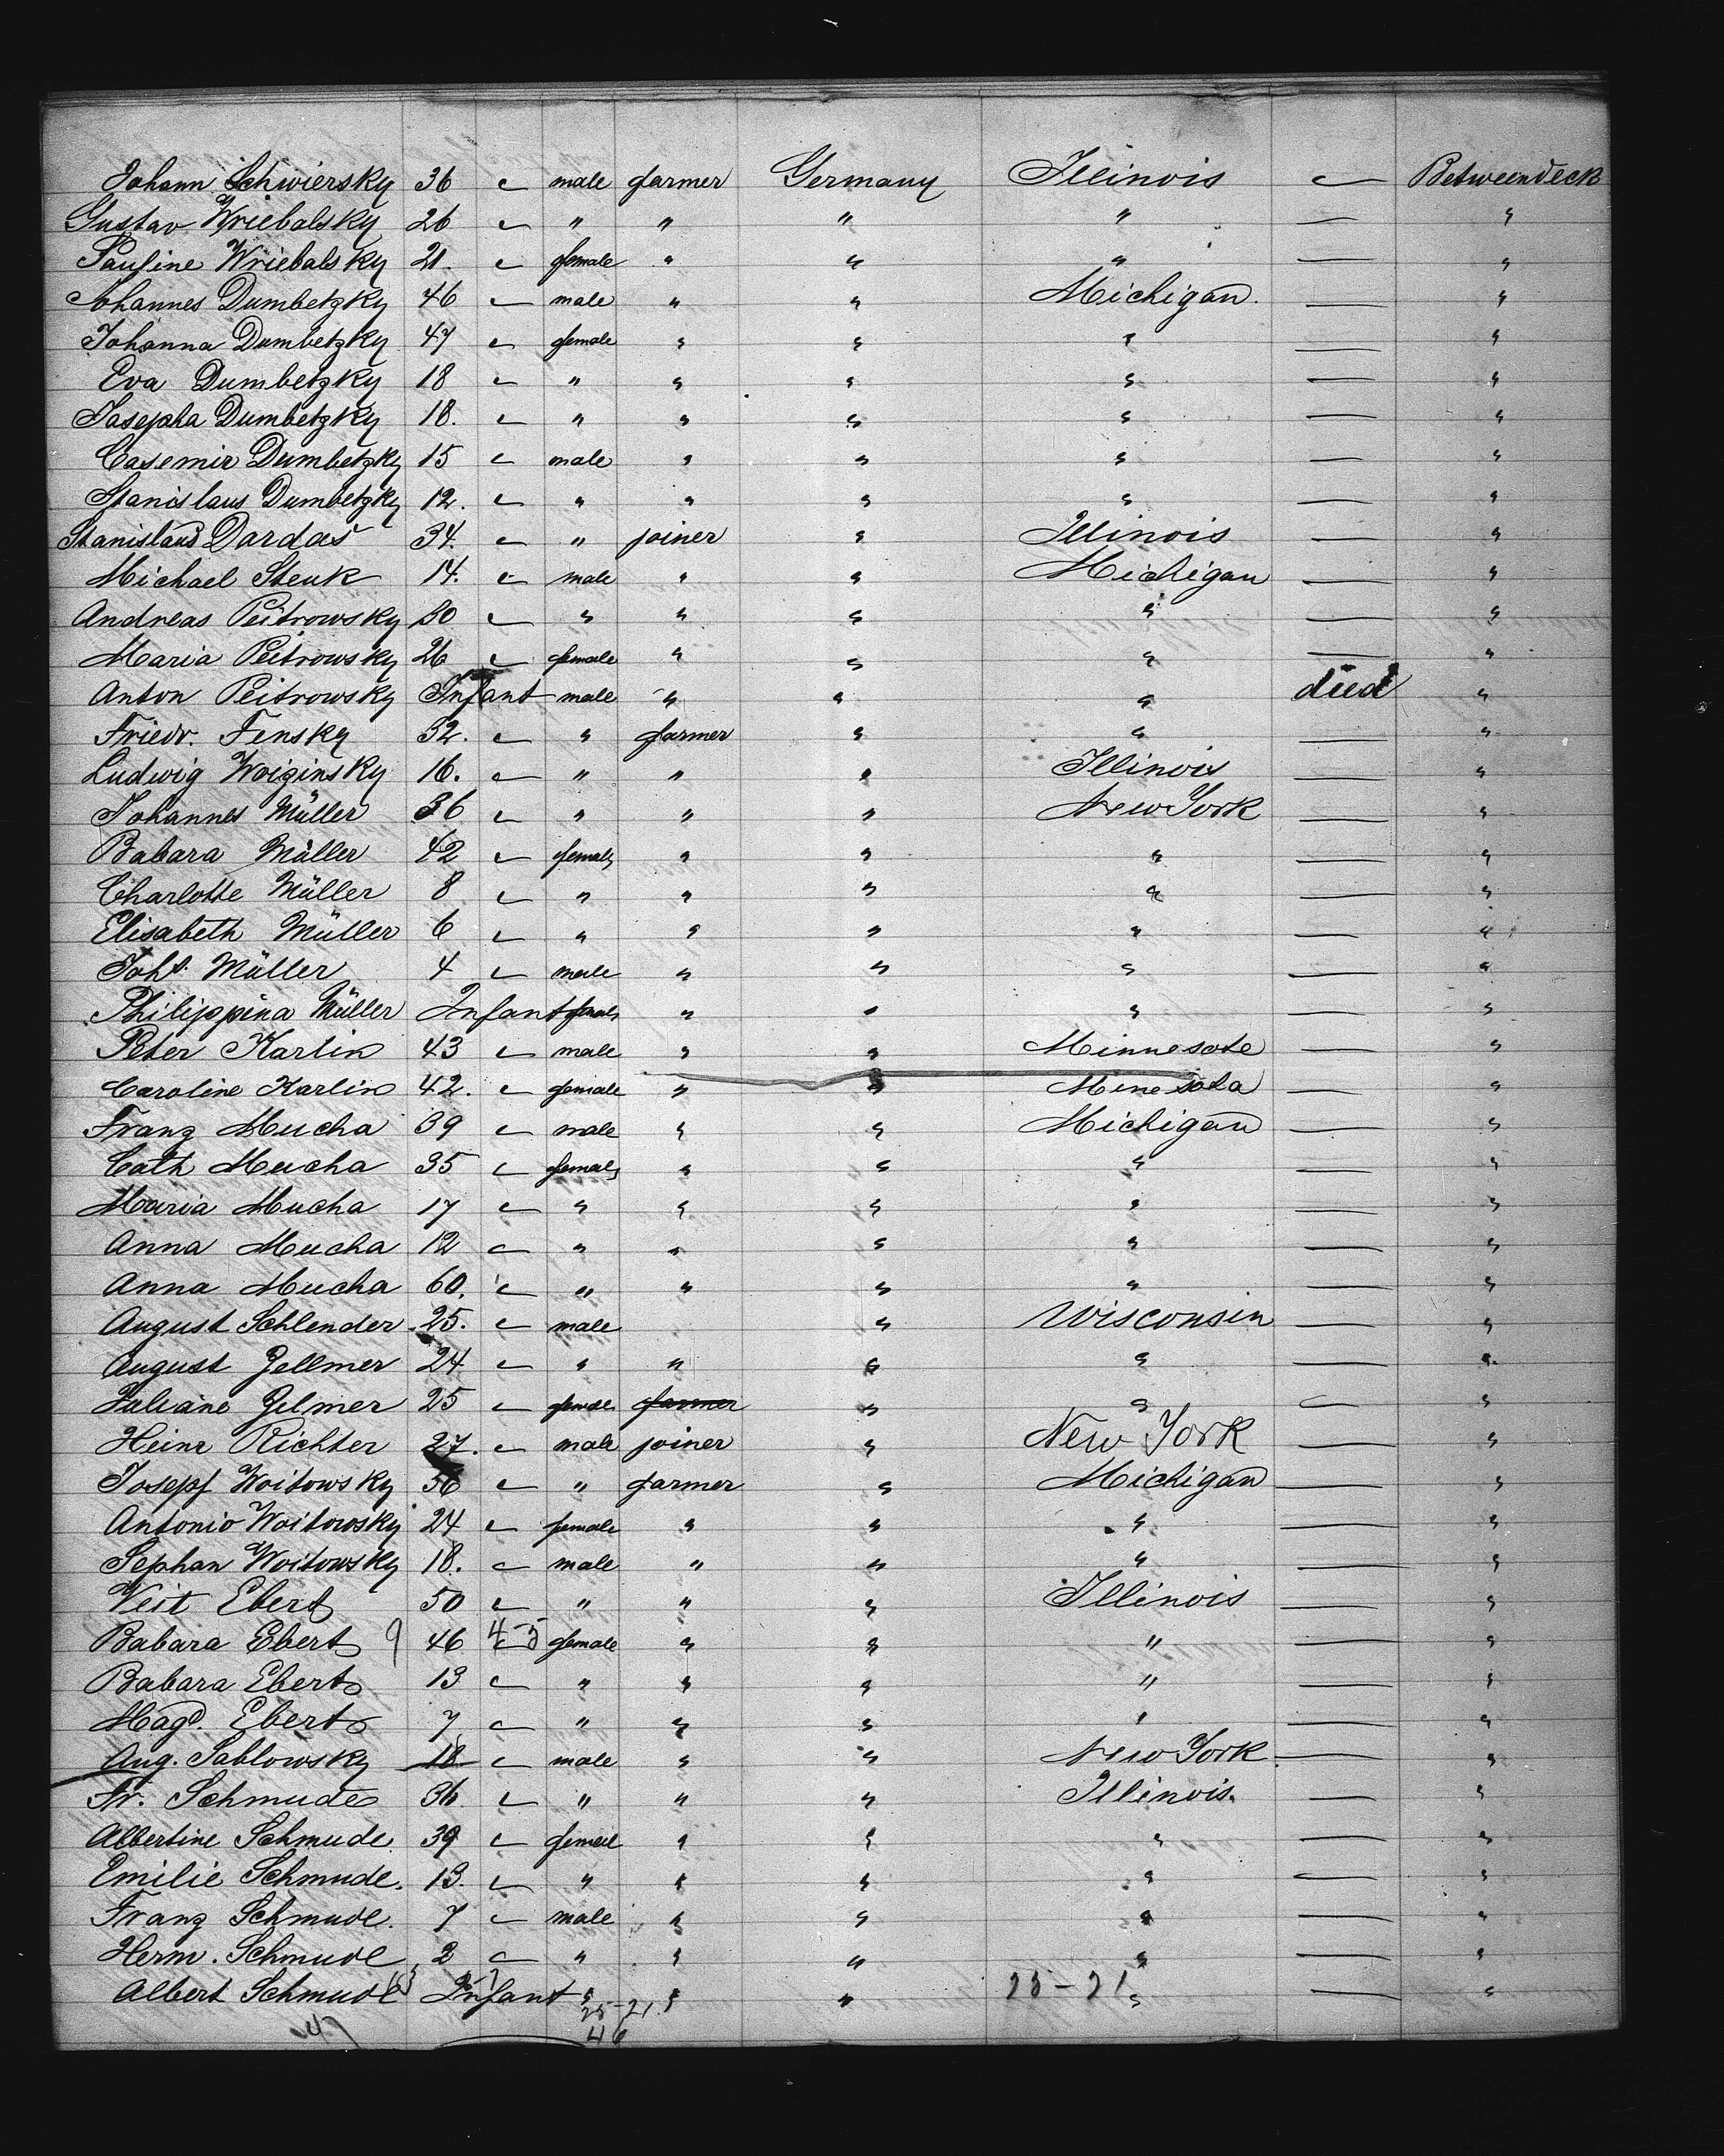 Johann Schwiersky 36 male farmer Germany Illinois — Betweendeck
Gustav Wriebalsky 26 " " " " — "
Pauline Wriebalsky 21. female " " " — "
Johannes Dumbetzky 46 male " " Michigan. — "
Johanna Dumbetzky 47 female " " " — "
Eva Dumbetzky 18 " " " " — "
Josepha Dumbetzky 18. " " " " — "
Casemir Dumbetzky 15 male " " " — "
Stanislaus Dumbetzky 12. " " " " — "
Stanislaus Dardas 34. " joiner " Illinois — "
Michael Steuk 14. male " " Michigan — "
Andreas Peitrowsky 30 " " " " — "
Maria Peitrowsky 26 female " " " — "
Anton Peitrowsky Infant male " " " died "
Friedr. Fensky 32. " farmer " " — "
Ludwig Woiginsky 16. " " " Illinois — "
Johannes Müller 36 " " " New York — "
Babara Müller 42 female " " " — "
Charlotte Müller 8 " " " " — "
Elisabeth Müller 6 " " " " — "
Joh. Müller 4 male " " " — "
Philippina Müller Infant female " " " — "
Peter Karlin 43 male " " Minnesote — "
Caroline Karlin 42. female " " Minesota — "
Franz Mucha 39 male " " Michigan — "
Cath Mucha 35 female " " " — "
Maria Mucha 17 " " " " — "
Anna Mucha 12 " " " " — "
Anna Mucha 60. " " " " — "
August Schlender 25. male " Wisconsin — "
August Gellmer 24 " " " " — "
Juliane Gelmer 25 female farmer " " — "
Heinr Richter 27. male joiner " New York — "
Josepf Woitowsky 56 " farmer " Michigan — "
Antonio Woitowsky 24 female " " " — "
Sephan Woitowsky 18. male " " " — "
Veit Ebert 50 " " " Illinois — "
Babara Ebert 9 46 4-5 female " " " — "
Babara Ebert 13 " " " " — "
Magd. Ebert 7 " " " " — "
Aug. Sablowsky 18 male " " New York — "
Fr. Schmude 36 " " " Illinois. — "
Albertine Schmude. 39 female " " " — "
Emilie Schmude. 13. " " " " — "
Franz Schmude. 7 male " " " — "
Herm. Schmude 2 " " " " — "
Albert Schmude Infant " " " " — "
25-21
25-21
47
46